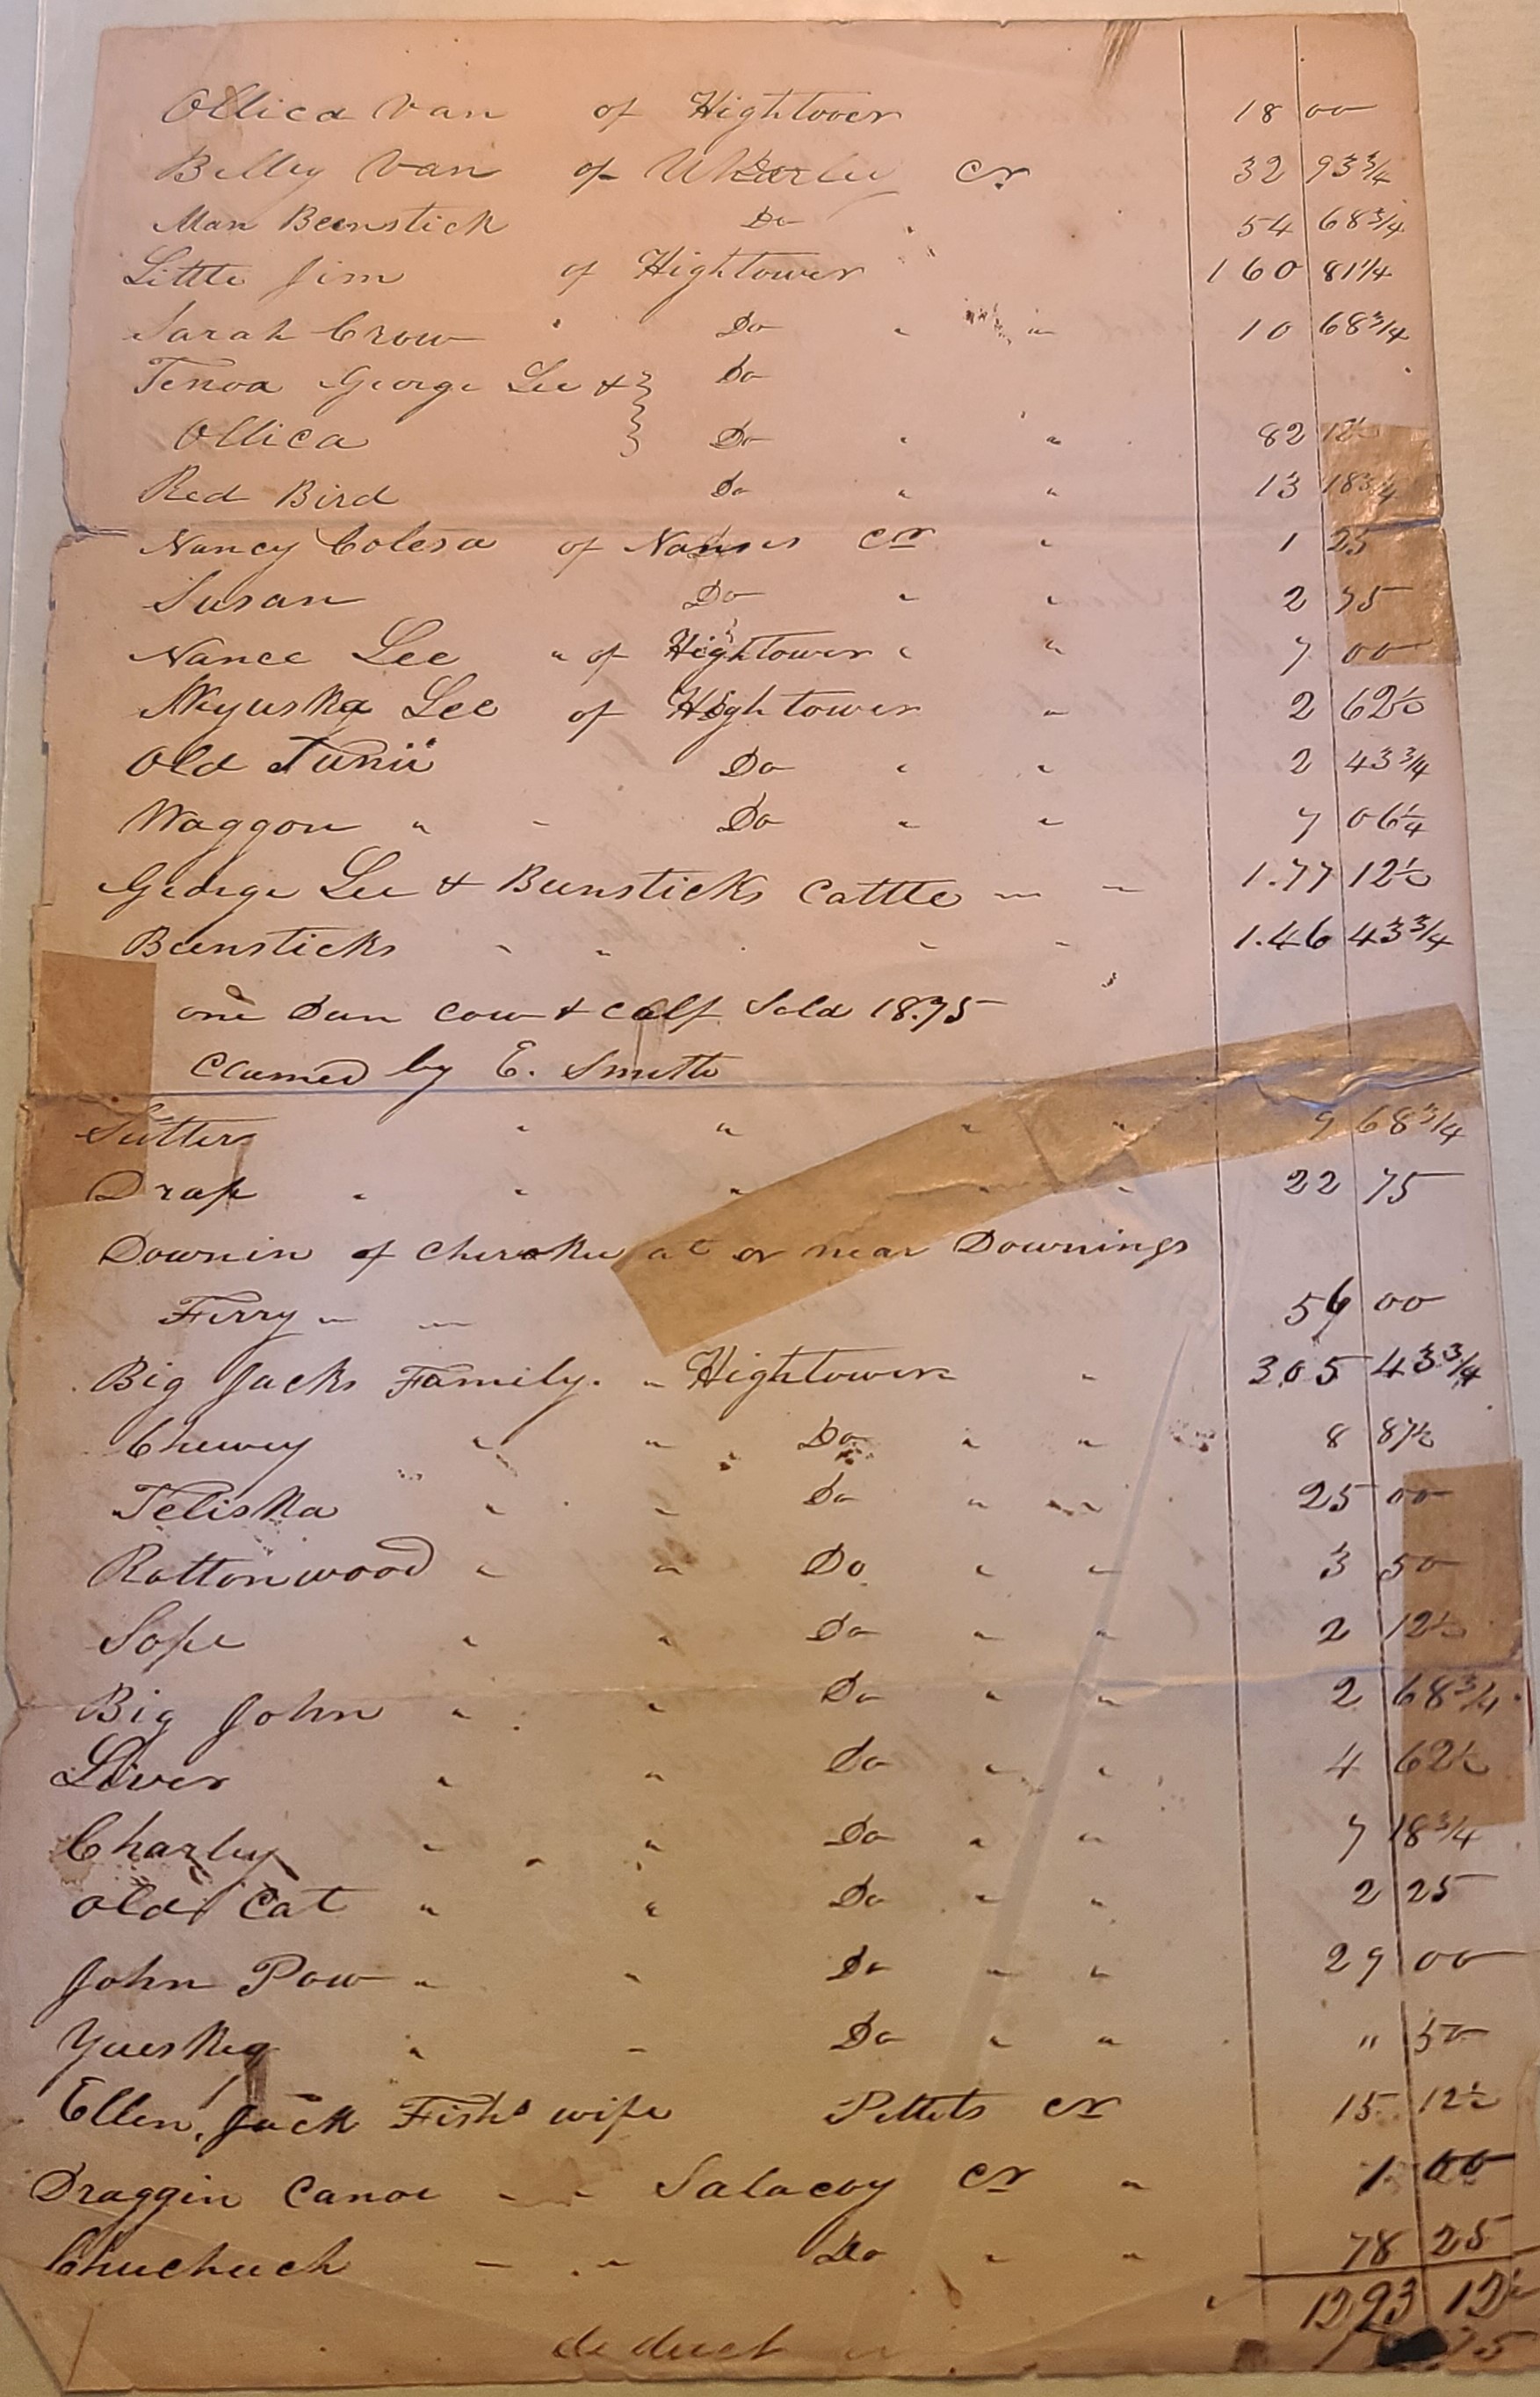 Ollica Van of Hightower 18 00
Billy Van of Wharley cr 32 93 3/4
Man Beenstick Do 54 68 3/4
Little Jim of Hightower 160 81 1/4
Sarah Crow " Do " " 10 68 3/4
Tenoa George Lee & } Do
Ollica } Do " " 82 12 1/2
Red Bird Do " " 13 18 3/4
Nancy Colesa of cr " 1 25
Susan Do " " 2 75
Nance Lee " of Hightower " " 7 00
Lee of Hightower " 2 62 1/2
Old Do " " 2 43 3/4
Waggon " " Do " " 7 06 1/4
George Lee & Bunsticks Cattle — — 1.77 12 1/2
Beensticks " " " " 1.46 43 3/4
one Dun Cow & Calf Sold 18.75
Clamed by E. Smith
Sutters " " " " 9 68 3/4
Drap " " " " " 22 75
Downin of Cherokee at or near Downings
Ferry — — 56 00
Big Jacks Family. " Hightower " 305 43 3/4
Chewey " " Do " " 8 87 1/2
Teliska " " Do " " 25 00
Rottonwood " " Do " " 3 50
Sope " " Do " " 2 12 1/2
Big John " " Do " " 2 68 3/4
Liver " " Do " " 4 62 1/2
Charley " " Do " " 7 18 3/4
Old Cat " " Do " " 2 25
John Pow " " Do " " 29 00
" " Do " " " 50
Ellen, Jack Fish's wife Pettets cr 15 12 1/2
Draggin Canoe — " Salacoy cr " 1 00
Chuchuch — " Do " " 78 25
1293 12 1/2
deduct " 75